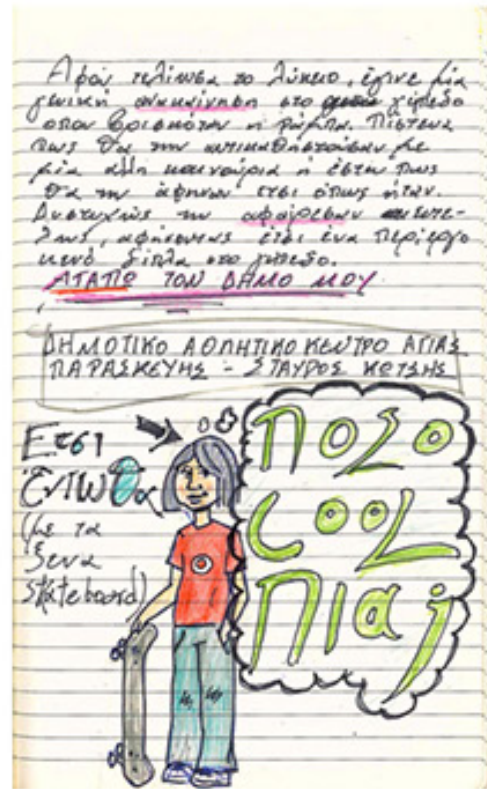 Αφού τελίωσα το λύκειο, έγινε μία
γενική ανακαίνηση στο γήπεδο
οπου βρισκόταν η ράμπα. Πίστευα
πως θα την αντικαθηστούσαν με
μία αλλη καινούρια ή έστω πως
θα την άφηναν ετσι όπως ήταν.
Δυστυχώς την αφαίρεσαν εντωτε-
λως, αφήνωντας έτσι ένα περίεργο
κενό δίπλα στο γήπεδο.
ΑΓΑΠΩ ΤΟΝ ΔΗΜΟ ΜΟΥ
ΔΗΜΟΤΙΚΟ ΑΘΛΗΤΙΚΟ ΚΕΝΤΡΟ ΑΓΙΑΣ
ΠΑΡΑΣΚΕΥΗΣ - ΣΤΑΥΡΟΣ ΚΩΤΣΗΣ
Ετσι
ένιωθα
(με τα
ξενα
skateboard)
Ποσο
cool
Πιαj